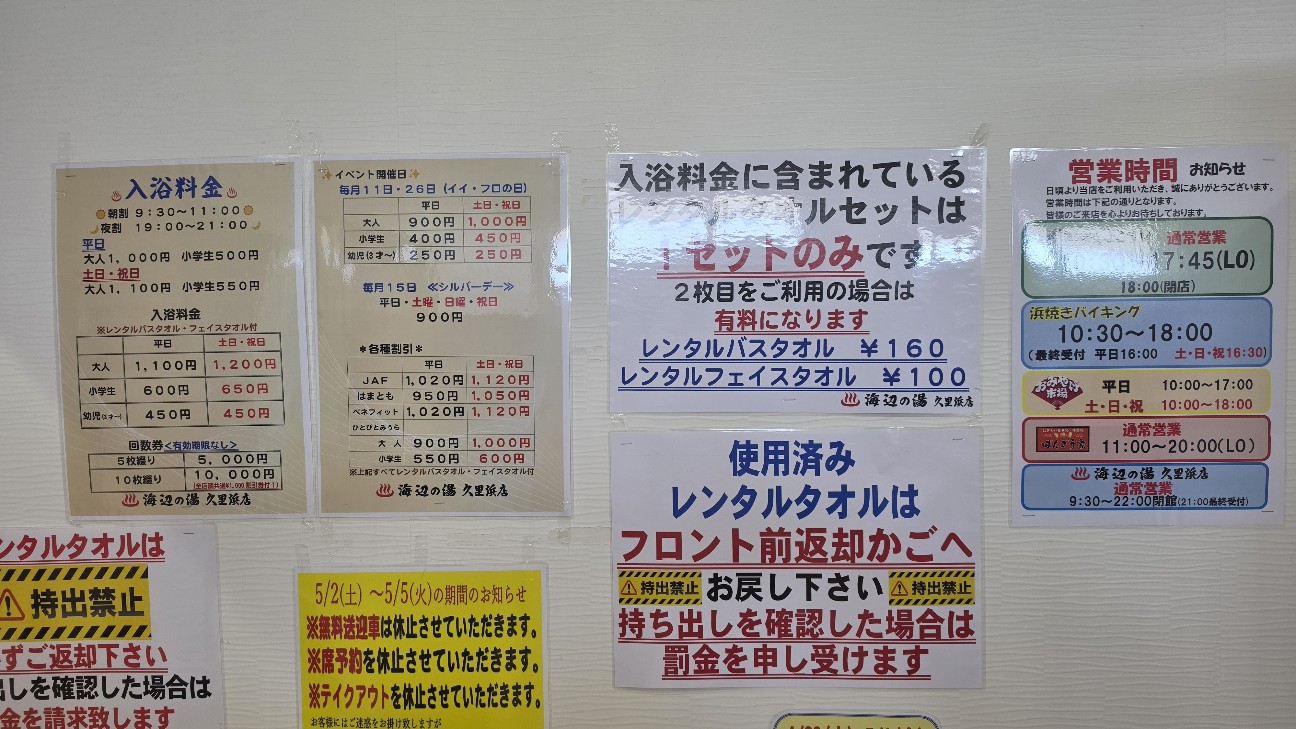 入浴料金
朝割 9:30～11:00
夜割 19:00～21:00
平日
大人1,000円 小学生500円
土日・祝日
大人1,100円 小学生550円
入浴料金
※レンタルバスタオル・フェイスタオル付
平日 土日・祝日
大人 1,100円 1,200円
小学生 600円 650円
幼児(3才～) 450円 450円
回数券<有効期限なし>
5枚綴り 5,000円
10枚綴り 10,000円
海辺の湯 久里浜店
イベント開催日
毎月11日・26日(イイ・フロの日)
平日 土日・祝日
大人 900円 1,000円
小学生 400円 450円
幼児(3才～) 250円 250円
毎月15日 ≪シルバーデー≫
平日・土曜・日曜・祝日
900円
＊各種割引＊
平日 土日・祝日
JAF 1,020円 1,120円
はまとも 950円 1,050円
ベネフィット 1,020円 1,120円
ひとびとみうら
大人 900円 1,000円
小学生 550円 600円
※上記すべてレンタルバスタオル・フェイスタオル付
海辺の湯 久里浜店
入浴料金に含まれている
レンタルタオルセットは
1セットのみです
2枚目をご利用の場合は
有料になります
レンタルバスタオル ￥160
レンタルフェイスタオル ￥100
海辺の湯 久里浜店
使用済み
レンタルタオルは
フロント前返却かごへ
持出禁止 お戻し下さい 持出禁止
持ち出しを確認した場合は
罰金を申し受けます
営業時間 お知らせ
日頃より当店をご利用いただき、誠にありがとうございます。
営業時間は下記の通りとなります。
皆様のご来店を心よりお待ちしております。
通常営業
17:45(LO)
18:00(閉店)
浜焼きバイキング
10:30～18:00
(最終受付 平日16:00 土・日・祝16:30)
市場 平日 10:00～17:00
土・日・祝 10:00～18:00
通常営業
11:00～20:00(LO)
海辺の湯 久里浜店
通常営業
9:30～22:00閉館(21:00最終受付)
ンタルタオルは
持出禁止
ずご返却下さい
出しを確認した場合は
金を請求致します
5/2(土)～5/5(火)の期間のお知らせ
※無料送迎車は休止させていただきます。
※席予約を休止させていただきます。
※テイクアウトを休止させていただきます。
お客様にはご迷惑をお掛け致しますが